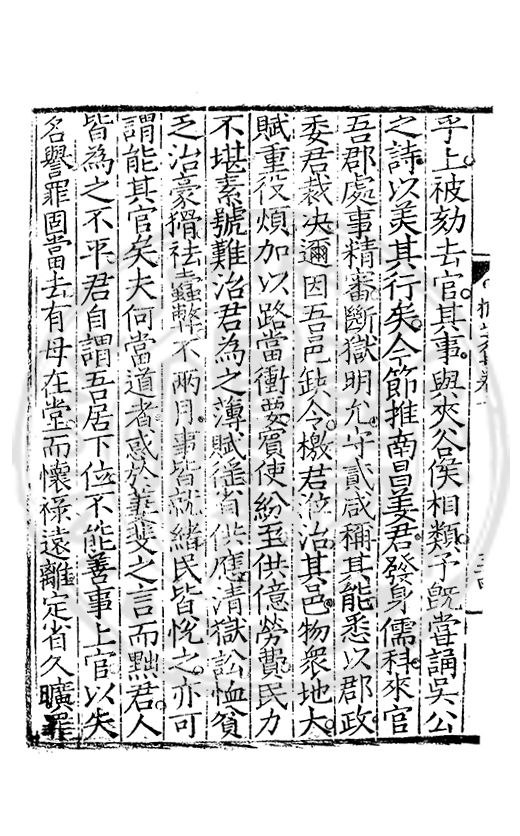 乎上被劾去官其事與夾谷侯相類予旣嘗誦吳公
之詩以美其行矣今節推南昌姜君發身儒科來官
吾郡處事精審斷獄明允守貳咸稱其能悉以郡政
委君裁决邇因吾邑缺令檄君涖治其邑物衆地大
賦重役煩加以路當衝要賓使紛至供億勞費民力
不堪素號難治君為之薄賦徭省供應清獄訟恤貧
乏治豪猾祛蠹弊不兩月事皆就緒民皆悅之亦可
謂能其官矣夫何當道者惑於萋斐之言而黜君人
皆為之不平君自謂吾居下位不能善事上官以失
名譽罪固當去有母在堂而懷祿遠離定省久曠罪